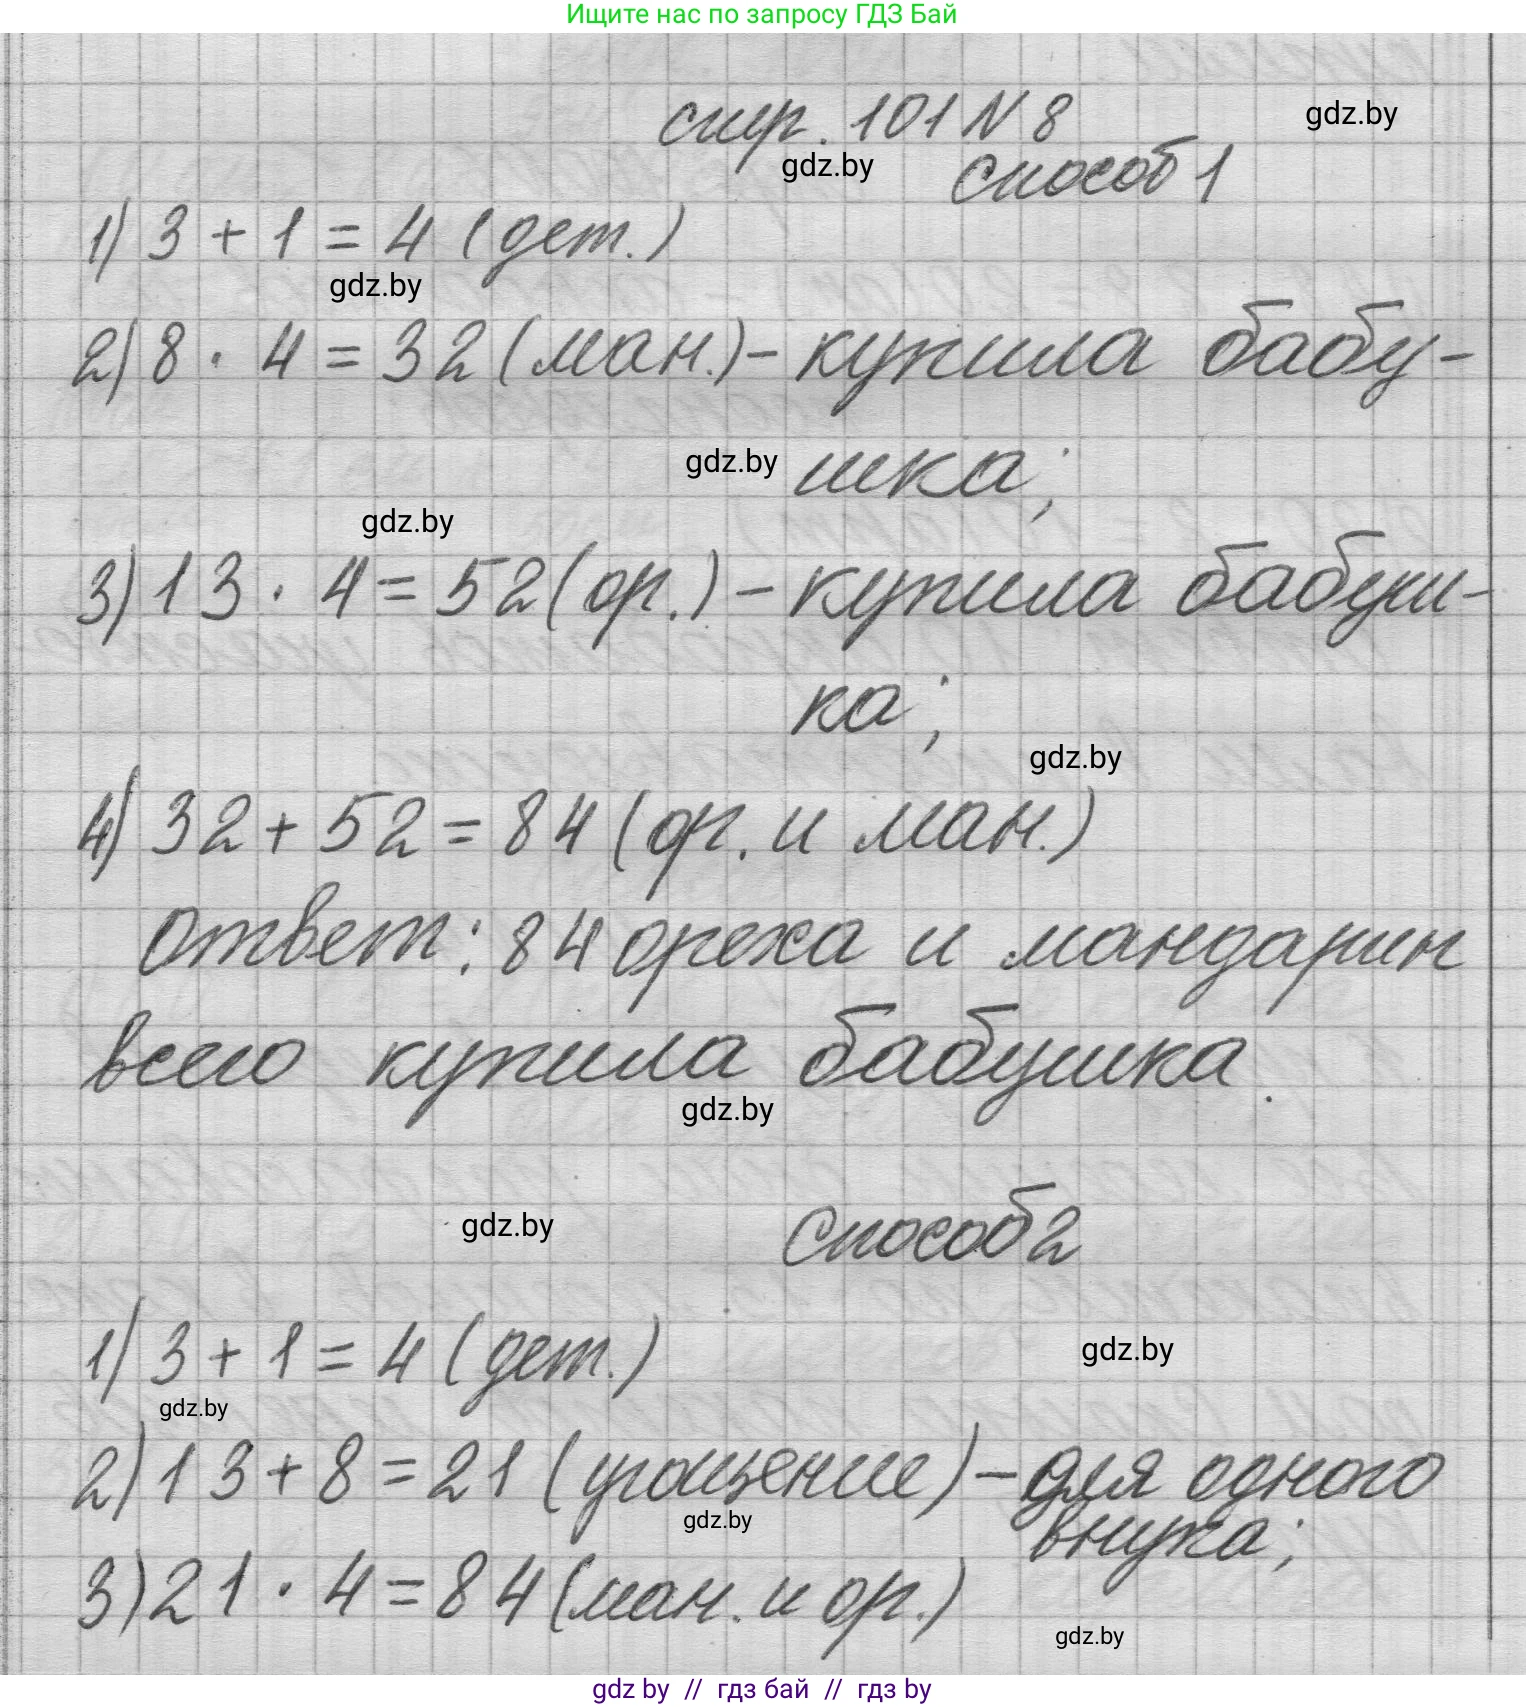 Ищите нас по запросу ГДЗ Бай
стр. 101 N 8
gdz.by
gdz.by
способ 1
1) 3 + 1 = 4 (дет.)
gdz.by
2) 8 · 4 = 32 (ман.) - купила бабу-
gdz.by
шка;
gdz.by
3) 13 · 4 = 52 (ор.) - купила бабуш-
ка;
gdz.by
4) 32 + 52 = 84 (ор. и ман.)
Ответ: 84 ореха и мандарин
всего купила бабушка.
gdz.by
gdz.by
способ 2
1) 3 + 1 = 4 (дет.)
gdz.by
gdz.by
2) 13 + 8 = 21 (угощение) - для одного
gdz.by
внука;
3) 21 · 4 = 84 (ман. и ор.)
gdz.by
gdz by // гдз бай // гдз by